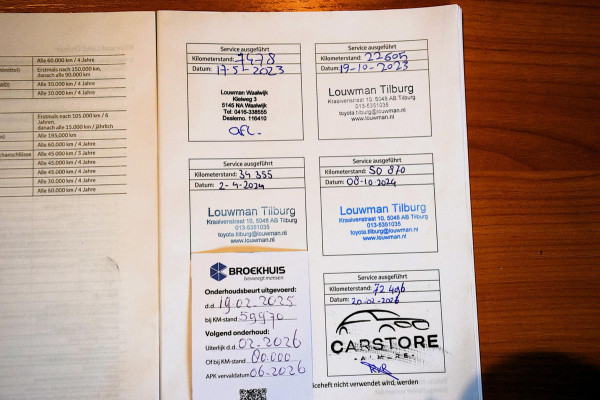 Alle 60.000 km / 4 Jahre
Erstmals nach 150.000 km,
danach alle 90.000 km
Alle 30.000 km / 4 Jahre
Alle 30.000 km / 4 Jahre
Erstmals nach 105.000 km / 6
Jahren,
danach alle 15.000 km / jährlich
Alle 195.000 km
Alle 60.000 km / 4 Jahre
Alle 45.000 km / 4 Jahre
Alle 45.000 km / 4 Jahre
Alle 45.000 km / 4 Jahre
Alle 30.000 km / 4 Jahre
Alle 60.000 km / 4 Jahre
Service ausgeführt
Kilometerstand: 7478
Datum: 17-5-2023
Louwman Waalwijk
Kleiweg 3
5145 NA Waalwijk
Tel: 0416-338555
Dealerno. 116410
Service ausgeführt
Kilometerstand: 22605
Datum: 19-10-2023
Louwman Tilburg
Kraaivenstraat 10, 5048 AB Tilburg
013-5351035
toyota.tilburg@louwman.nl
www.louwman.nl
Service ausgeführt
Kilometerstand: 34 355
Datum: 2-4-2024
Louwman Tilburg
Kraaivenstraat 10, 5048 AB Tilburg
013-5351035
toyota.tilburg@louwman.nl
www.louwman.nl
Service ausgeführt
Kilometerstand: 50 870
Datum: 08-10-2024
Louwman Tilburg
Kraaivenstraat 10, 5048 AB Tilburg
013-5351035
toyota.tilburg@louwman.nl
www.louwman.nl
BROEKHUIS
beweegt mensen
Onderhoudsbeurt uitgevoerd:
d.d. 19.02.2025
bij KM-stand 59970
Volgend onderhoud:
Uiterlijk d.d. 02.2026
Of bij KM-stand 80.000
APK vervaldatum 06.2026
Service ausgeführt
Kilometerstand: 72 496
Datum: 20-02-2026
CARSTORE
ALMERE
iceheft nicht verwendet wird, werden